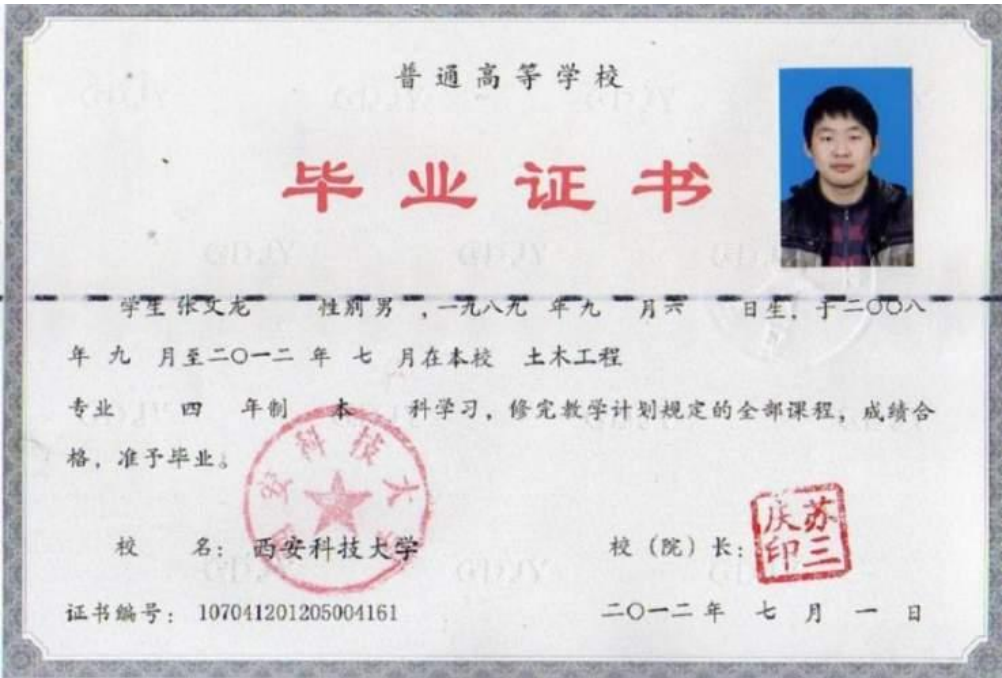 普通高等学校
毕业证书
学生 张文龙 性别 男 ,一九八九 年 九 月 六 日生，于二〇〇八
年 九 月至二〇一二 年 七 月在本校 土木工程
专业 四 年制 本 科学习，修完教学计划规定的全部课程，成绩合
格，准予毕业。
西安科技大学
校 名： 西安科技大学
校（院）长：
苏三庆印
证书编号： 107041201205004161
二〇一二 年 七 月 一 日